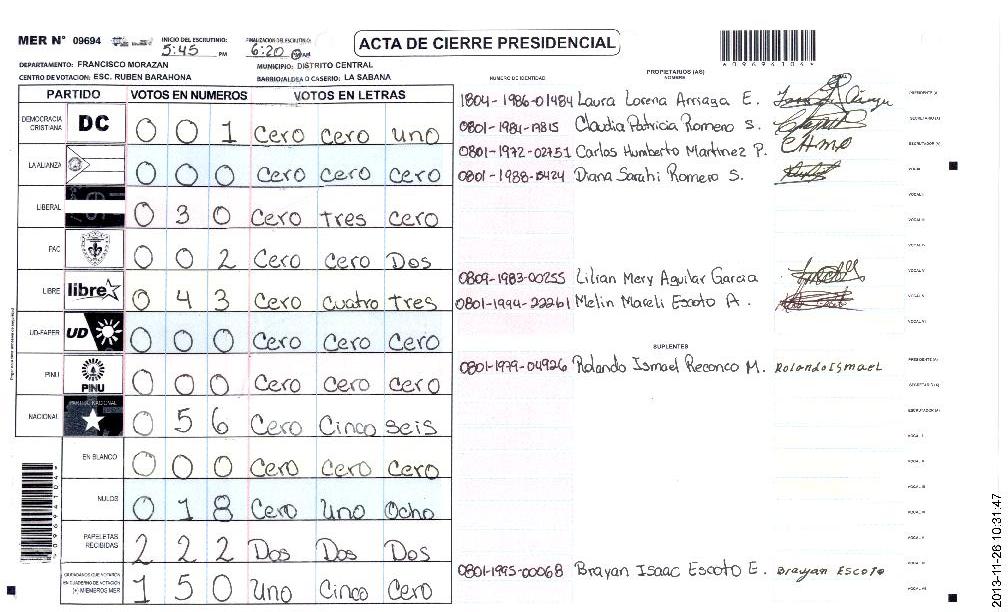 MER Nº 09694
INICIO DEL ESCRUTINIO: 5:45 PM
FINALIZACION DEL ESCRUTINIO: 6:20
ACTA DE CIERRE PRESIDENCIAL
DEPARTAMENTO: FRANCISCO MORAZAN
MUNICIPIO: DISTRITO CENTRAL
CENTRO DE VOTACION: ESC. RUBEN BARAHONA
BARRIO/ALDEA O CASERIO: LA SABANA
PARTIDO VOTOS EN NUMEROS VOTOS EN LETRAS
DEMOCRACIA CRISTIANA DC 0 0 1 Cero cero uno
LA ALIANZA 0 0 0 cero cero cero
LIBERAL 0 3 0 Cero tres cero
PAC 0 0 2 Cero Cero Dos
LIBRE libre 0 4 3 Cero cuatro tres
UD-FAPER UD 0 0 0 Cero Cero Cero
PINU PINU 0 0 0 Cero Cero Cero
NACIONAL PARTIDO NACIONAL 0 5 6 Cero Cinco seis
EN BLANCO 0 0 0 Cero Cero Cero
NULOS 0 1 8 Cero Uno Ocho
PAPELETAS RECIBIDAS 2 2 2 Dos Dos Dos
CIUDADANOS QUE VOTARON EN CUADERNO DE VOTACION (+) MIEMBROS MER 1 5 0 Uno Cinco Cero
NUMERO DE IDENTIDAD
PROPIETARIOS (AS)
NOMBRE
1804-1986-01484 Laura Lorena Arriaga E. PRESIDENTE (A)
Claudia Patricia Romero S. SECRETARIO (A)
0801-1972-02751 Carlos Humberto Martinez P. ESCRUTADOR (A)
Diana Sarahi Romero S. VOCAL I
0809-1983-00255 Lilian Mery Aguilar Garcia
0801-1994-22261 Melin Mareli Escoto A.
SUPLENTES
0801-1979-04926 Rolando Ismael Reconco M. Rolando Ismael PRESIDENTE (A)
SECRETARIO (A)
ESCRUTADOR (A)
0801-1995-00068 Brayan Isaac Escoto E. Brayan Escoto
2013-11-26 10:31:47